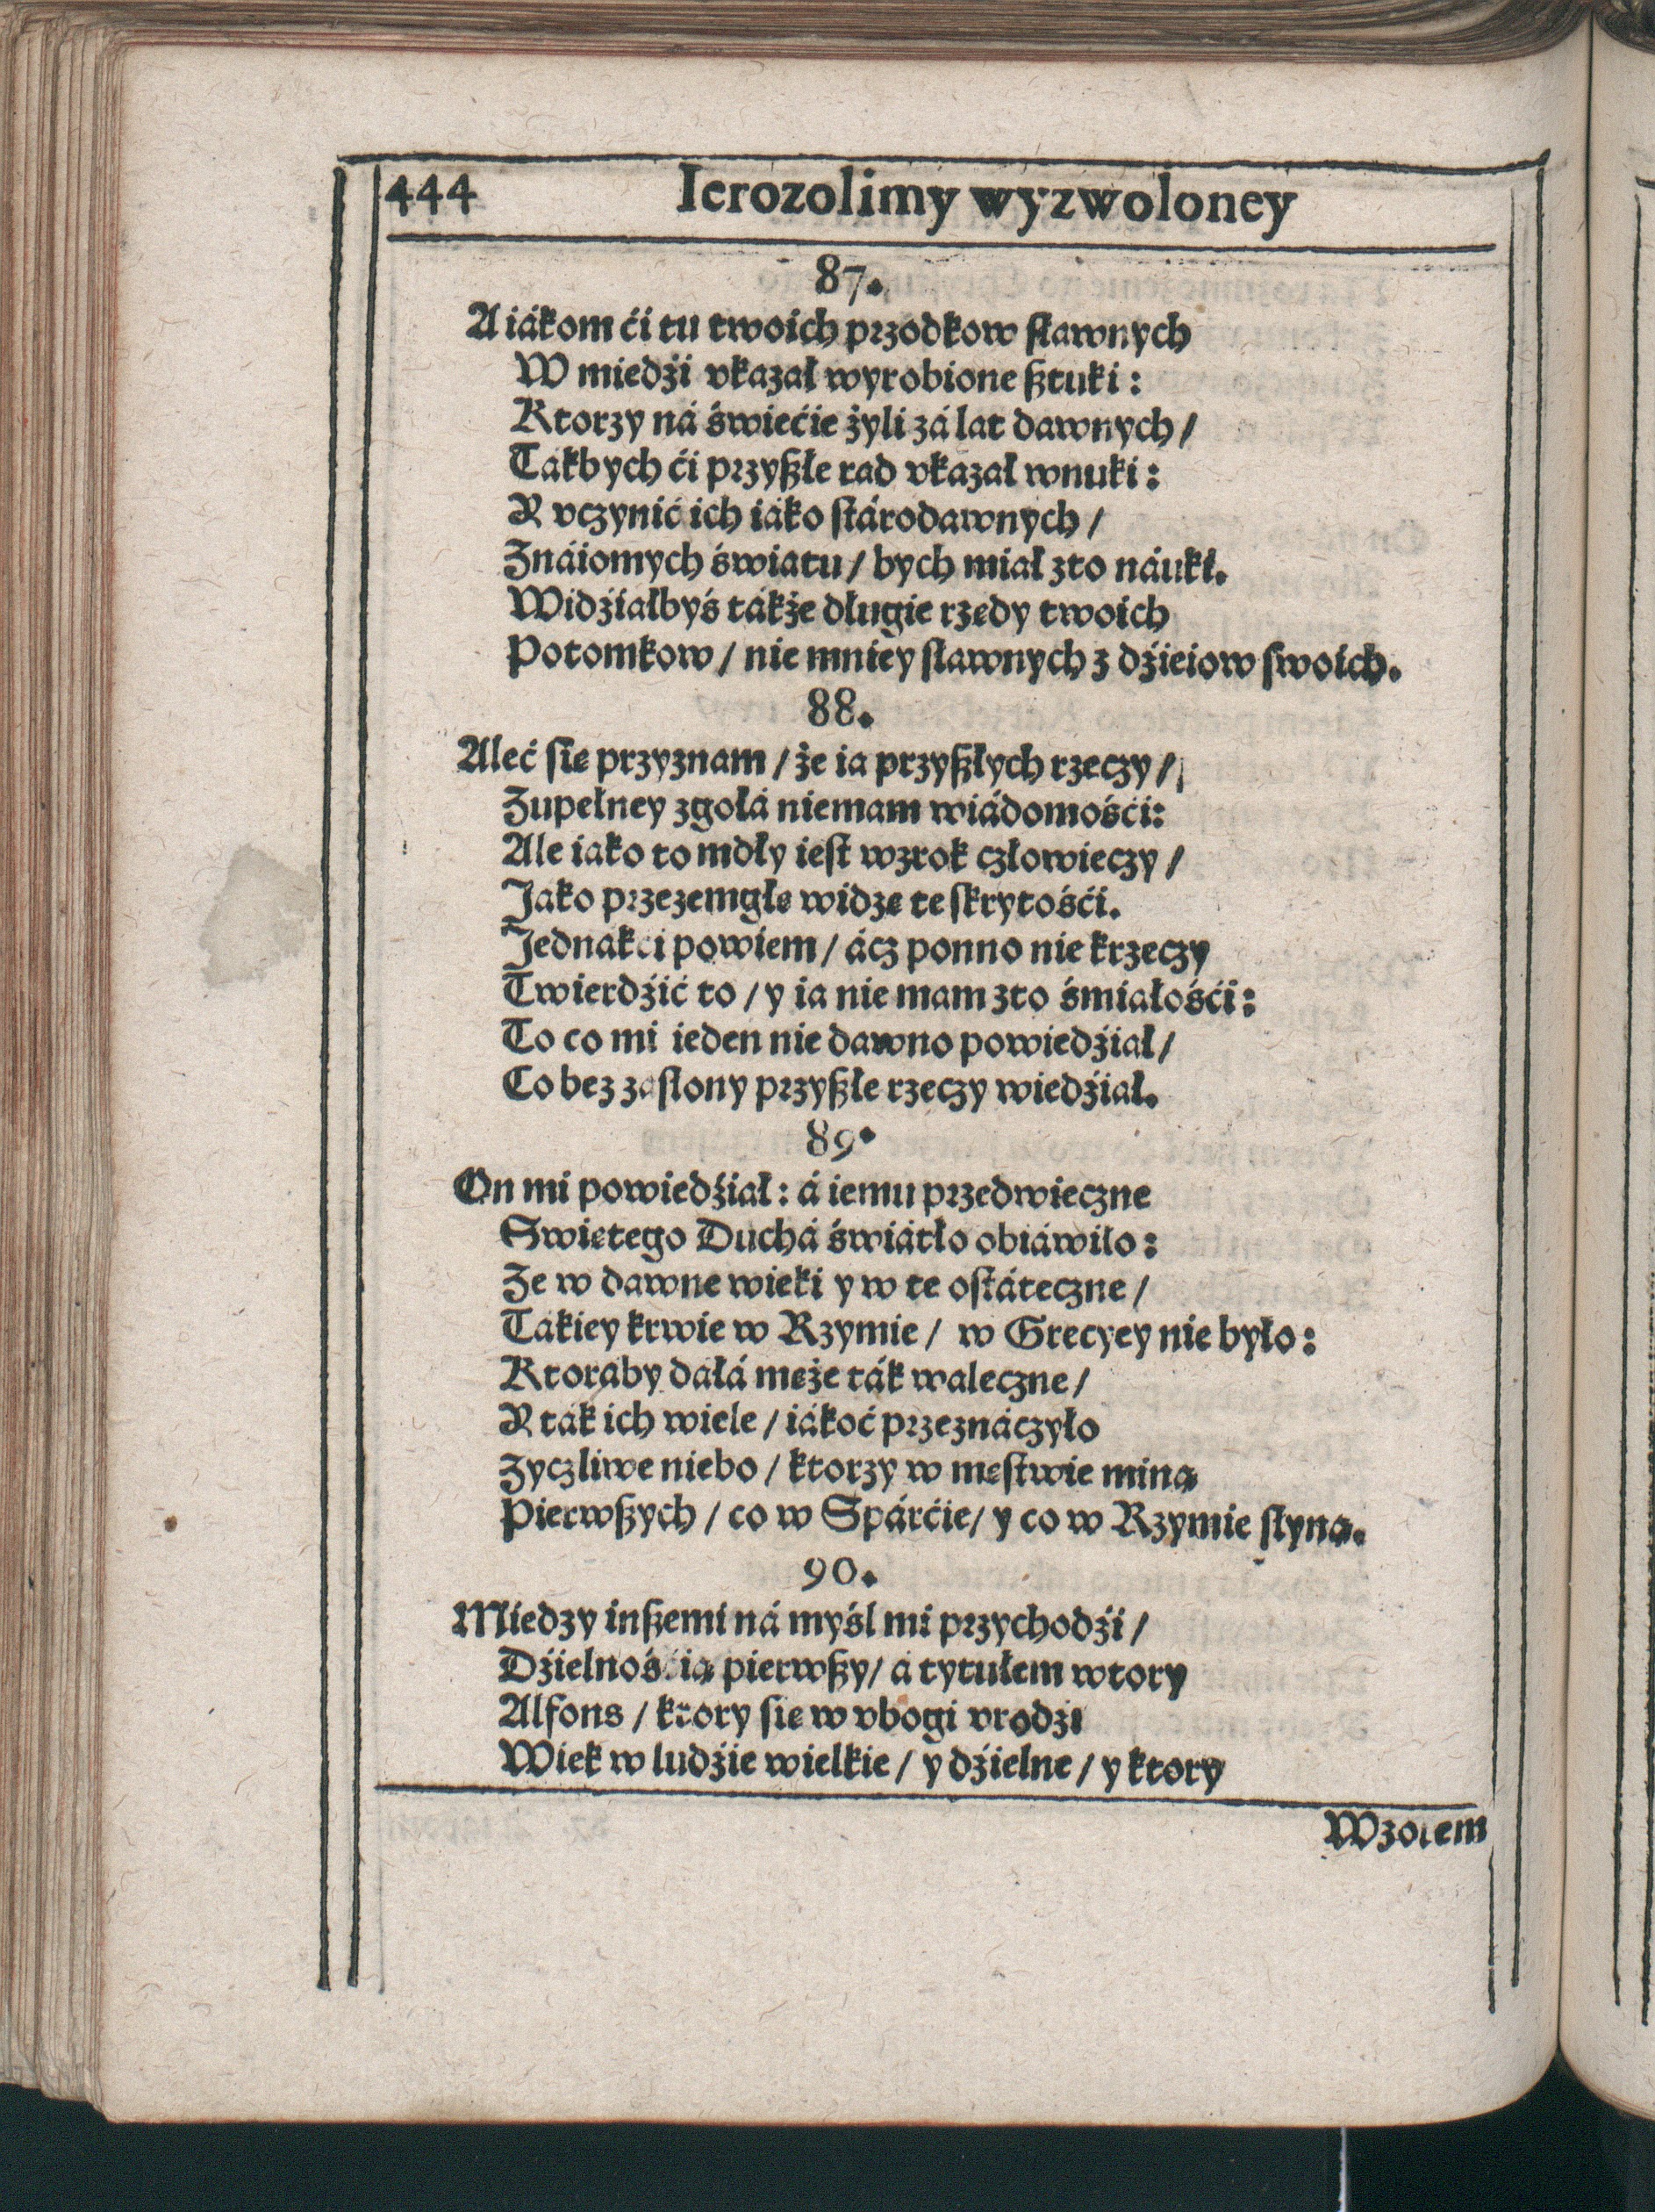 444 Ierozolimy wyzwoloney
87.
A iákom ći tu twoich przodkow sławnych
W miedźi vkazał wyrobione ßtuki:
Ktorzy ná świećie żyli zá lat dawnych/
Tákbych ći przyßłe rad vkazał wnuki:
Y vczynić ich iáko stárodawnych/
Znáiomych światu/ bych miał z to náuki.
Widźiałbyś tákże długie rzędy twoich
Potomkow/ nie mniey sławnych z dźieiow swoich.
88.
Aleć się przyznam/ że ia przyßłych rzeczy/
Zupełney zgołá niemam wiádomośći:
Ale iako to mdły iest wzrok człowieczy/
Jako przezemgłę widzę te skrytośći.
Jednákci powiem/ ácz ponno nie krzeczy
Twierdźić to/ y ia nie mam z to śmiałośći:
To co mi ieden nie dawno powiedźiał/
Co bez zasłony przyßłe rzeczy wiedźiał.
89.
On mi powiedźiał: á iemu przedwieczne
Swiętego Duchá świátło obiáwiło:
Ze w dawne wieki y w te ostáteczne/
Tákiey krwie w Rzymie/ w Grecyey nie było:
Ktoraby dáłá męże ták waleczne/
Y ták ich wiele/ iákoć przeznáczyło
Zyczliwe niebo/ ktorzy w męstwie miną
Pierwßych/ co w Spárćie/ y co w Rzymie słyną.
90.
Miedzy inßemi ná myśl mi przychodźi/
Dźielnośćią pierwßy/ á tytułem wtory
Alfons/ ktory się w vbogi vrodźi
Wiek w ludźie wielkie/ y dźielne/ y ktory
Wzorem